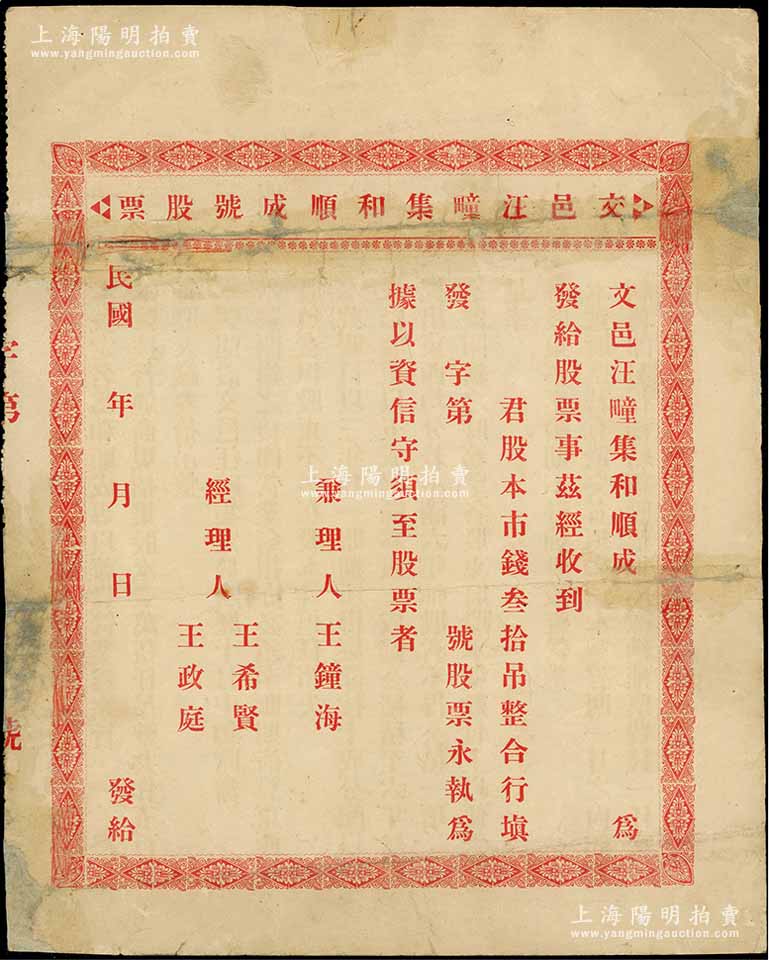 上海陽明拍賣
www.yangmingauction.com
交邑汪疃集和順成號股票
文邑汪疃集和順成 為
發給股票事茲經收到
君股本市錢叁拾吊整合行塡
發 字第 號股票永執為
據以資信守須至股票者
兼理人 王鐘海
經理人 王希賢
王政庭
民國 年 月 日 發給
字第 號
上海陽明拍賣
www.yangmingauction.com
上海陽明拍賣
www.yangmingauction.com